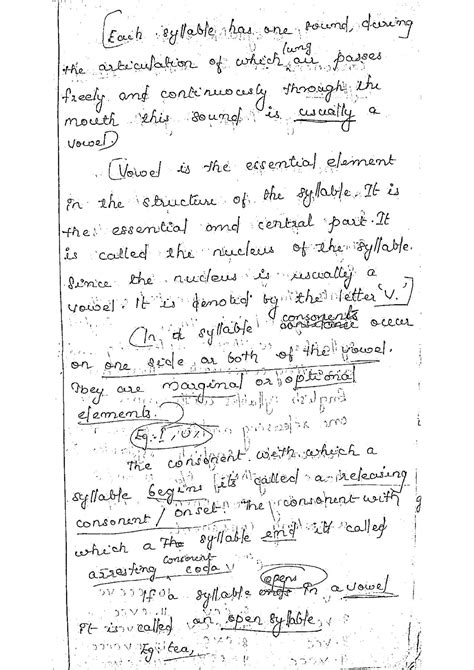 (Each syllable has one sound, during
the articulation of which lung air passes
freely and continuously through the
mouth this sound is usually a
vowel)
(Vowel is the essential element
in the structure of the syllable. It is
the essential and central part. It
is called the nucleus of the syllable.
Since the nucleus is usually a
vowel. It is denoted by the letter 'V.']
(In a syllable consonents occur
on one side or both of the vowel.
They are marginal or optional
elements.)
Eg:- I,
The consonent with which a
syllable begins is called a releasing
consonent / onset. The consonent with
which a The syllable end is called
arresting consonent, coda
If a syllable opens in a vowel
it is called an open syllable
Eg: tea,